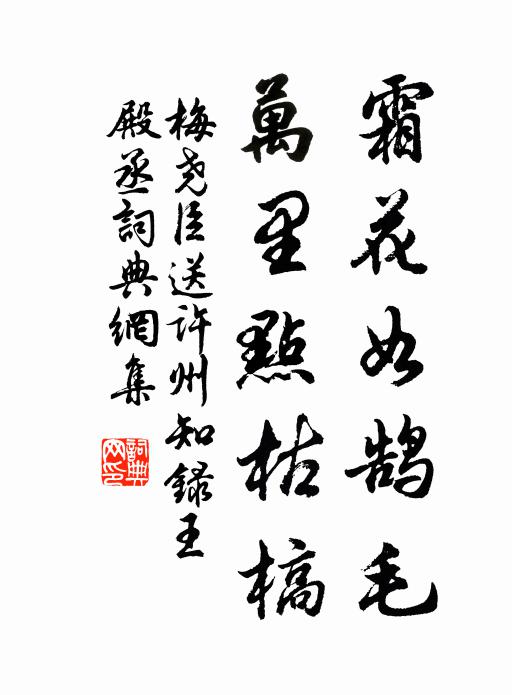 霜花如鹄毛
萬里點枯槁
梅尧臣送許州知錄王
殿丞詞典網集
詞典
网印